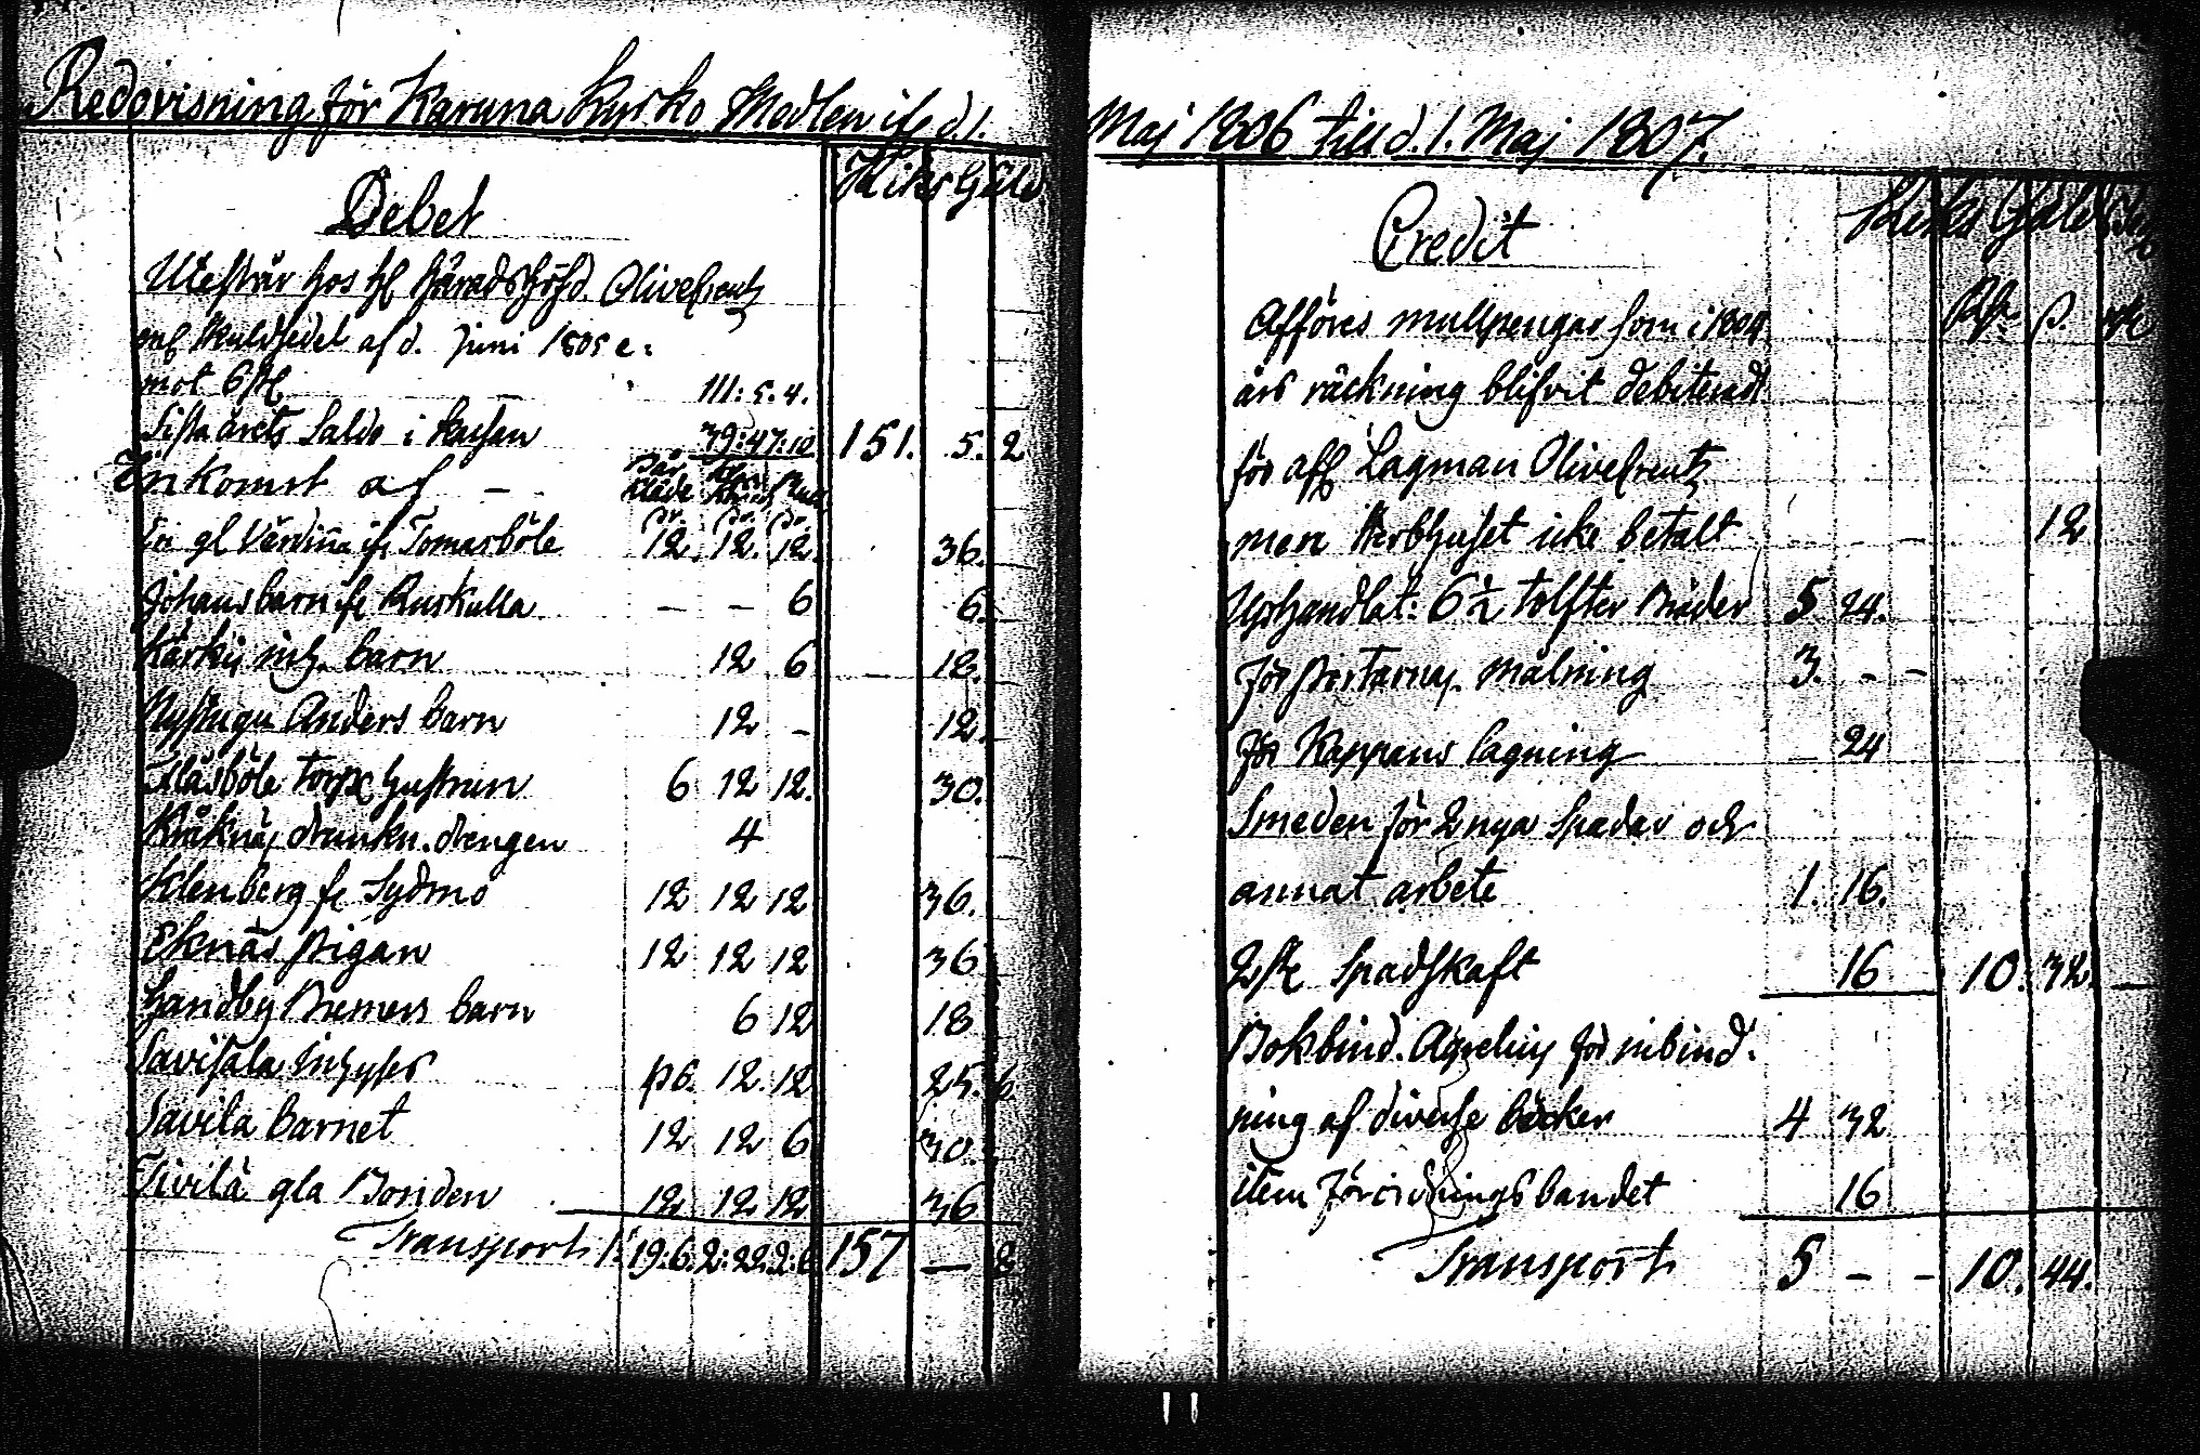 Redovisning för Karuna kyrko Medlen ifr d. 1.
Debet
Riks Gäld
Utestår hos H Häradshöfd. Olivecreutz
enl Skuldsedel af d. Juni 1805 e:
mot 6 pC 111: 5. 4.
Sista årets Saldo i kassan 39: 47. 10 151. 5. 2
Inkomst af - Bår kläde
En gl Värdina ifr Tomarböle 12. 12. 12. 36.
Johans barn fr Ruskulla - - 6 6.
Kärky inh. barn 12 6 18.
Nystugu Anders barn 12 - 12.
Måsböle Torp hustrun 6 12 12. 30.
Kråknäs drunkn. drengen 4
Klenberg fr Sydmo 12 12 12 36.
Eknäs Pigan 12 12 12 36
Sandby Bremers barn 6 12 18
Savisala Inhyses p6. 12. 12 25. 6
Savila barnet 12 12 6 30.
Tivilä gla Bonden 12 12 12 36
Transport 1: 19: 6. 2: 22. 2: 6 157 — 8
Maj 1806 till d. 1. Maj 1807.
Credit
Riks Gäld
Afföres mullpengar som i 1804
års räckning blifvit debiteradt
för afl Lagman Olivecreutz
men Sterbhuset icke betalt - - - 12
Uphandlat: 6½ tolfter Bräder 5 24.
för Portarnas målning 3. - -
för Kappans lagning - 24
Smeden för 2 nya Spadar och
annat arbete 1. 16.
2 st Spadskaft 16 10. 32. —
Bokbind. Agrelius för inbind-
ning af diverse böcker 4 32
item Förordningsbandet 16
Transport 5 - - 10. 44.